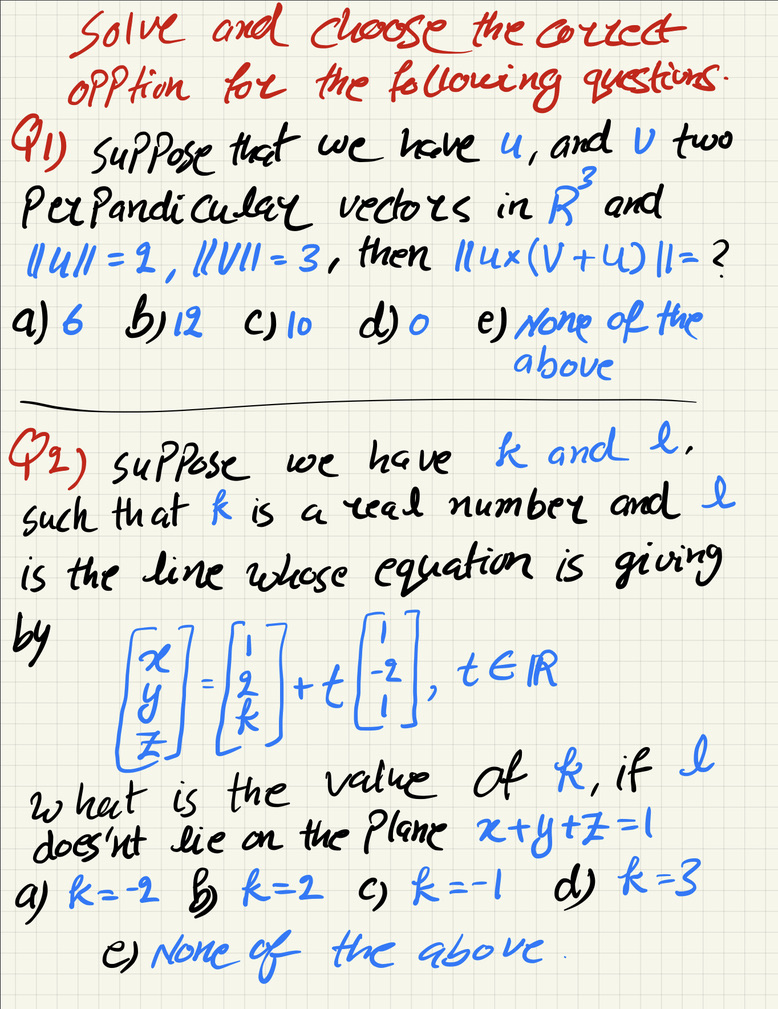 Solve and choose the correct
opption for the following questions.
Q1) Suppose that we have u, and v two
Perpandicular vectors in R³ and
||u|| = 2, ||v|| = 3, then ||u×(v+u)|| = ?
a) 6 b) 12 c) 10 d) 0 e) None of the
above
Q2) suppose we have k and l,
such that k is a real number and l
is the line whose equation is giving
by
[x y z] = [1 2 k] + t [1 -2 1], t ∈ ℝ
what is the value of k, if l
does'nt lie on the plane x+y+z=1
a) k=-2 b) k=2 c) k=-1 d) k=3
e) None of the above.